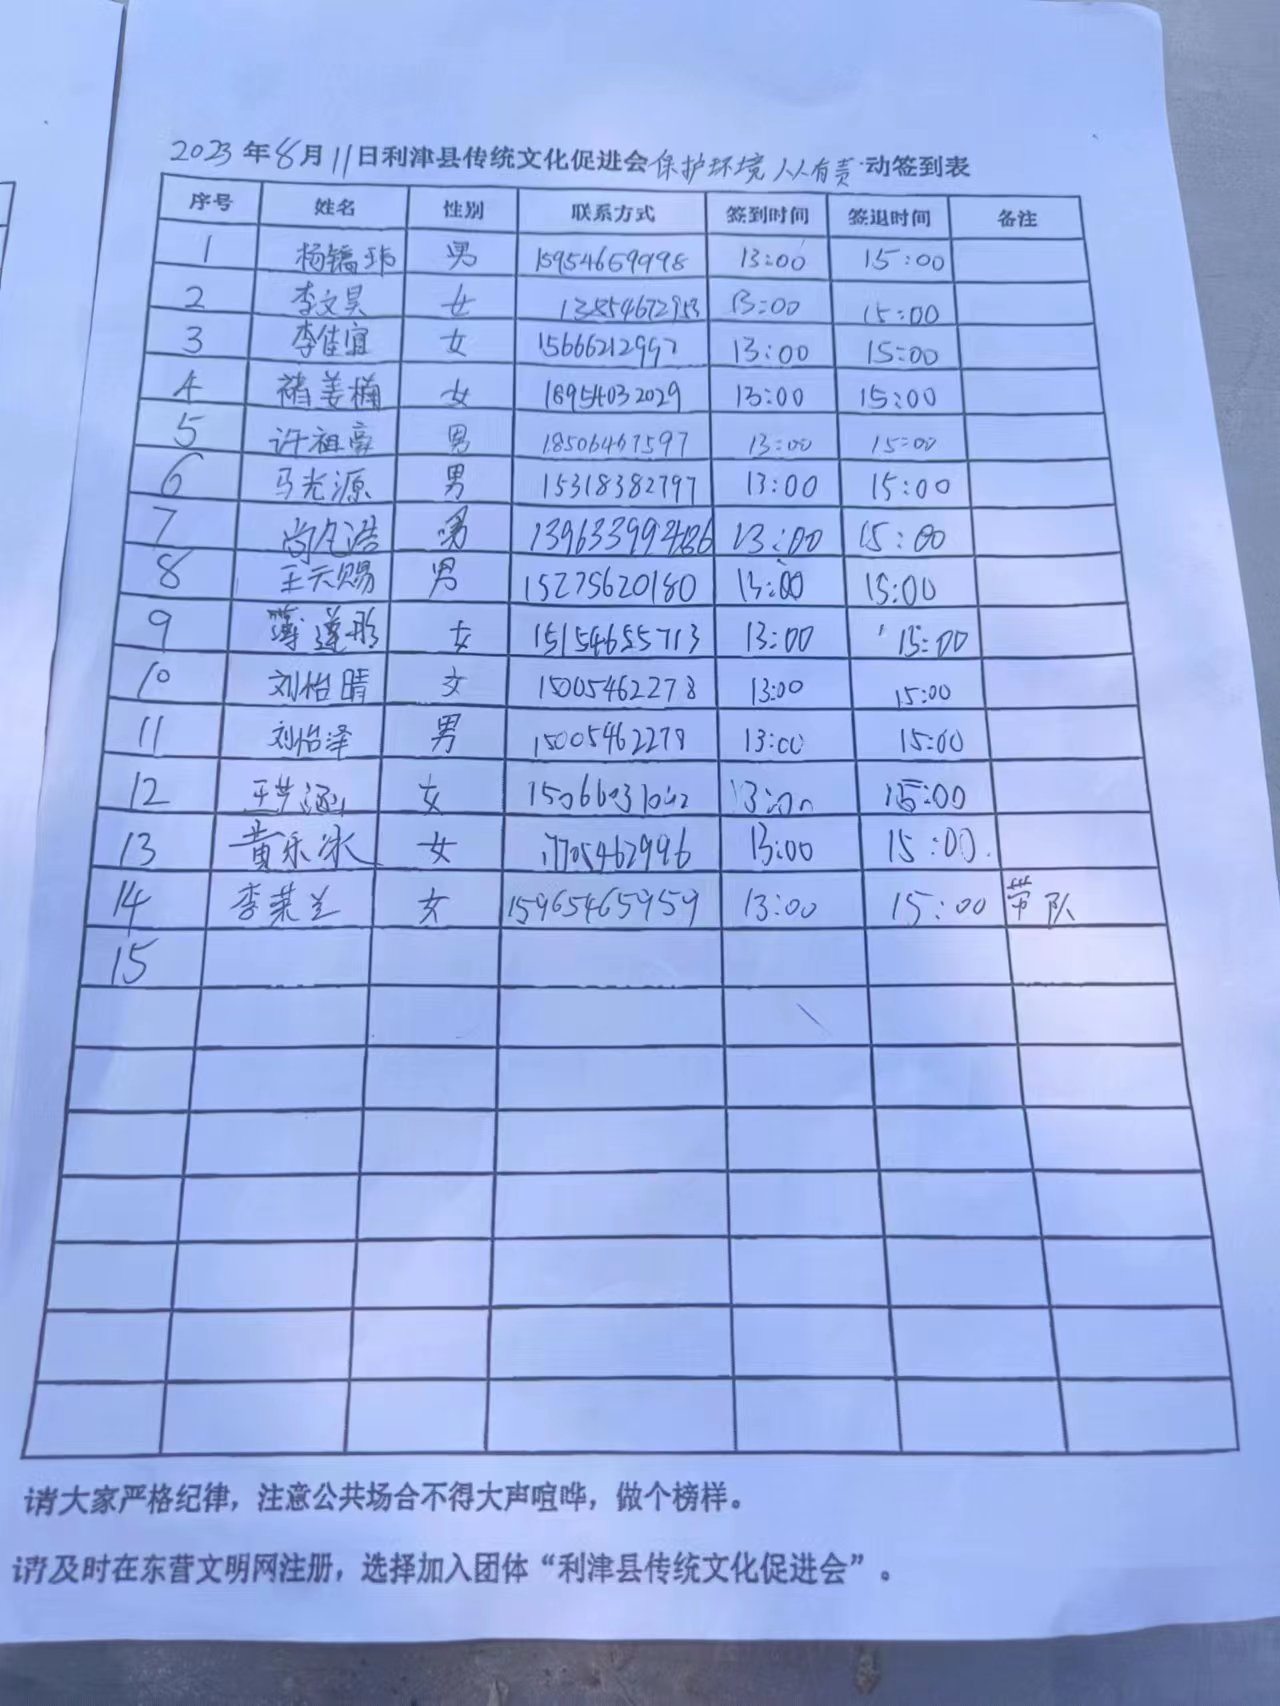 2023年8月11日利津县传统文化促进会保护环境人人有责动签到表
序号 姓名 性别 联系方式 签到时间 签退时间 备注
1 杨镐玮 男 15954659998 13:00 15:00
2 李文昊 女 13854672953 13:00 15:00
3 李佳宜 女 15666212997 13:00 15:00
4 褚姜楠 女 18954032029 13:00 15:00
5 许祖豪 男 18506467597 13:00 15:00
6 马光源 男 15318382797 13:00 15:00
7 尚凡浩 男 13:00 15:00
8 王天赐 男 15275620180 13:00 15:00
9 薄莲彤 女 15154655713 13:00 15:00
10 刘怡晴 女 15005462278 13:00 15:00
11 刘怡泽 男 15005462278 13:00 15:00
12 女 13:00 15:00
13 黄乐冰 女 17705462996 13:00 15:00
14 李荣兰 女 15965465959 13:00 15:00 带队
15
请大家严格纪律，注意公共场合不得大声喧哗，做个榜样。
请及时在东营文明网注册，选择加入团体“利津县传统文化促进会”。